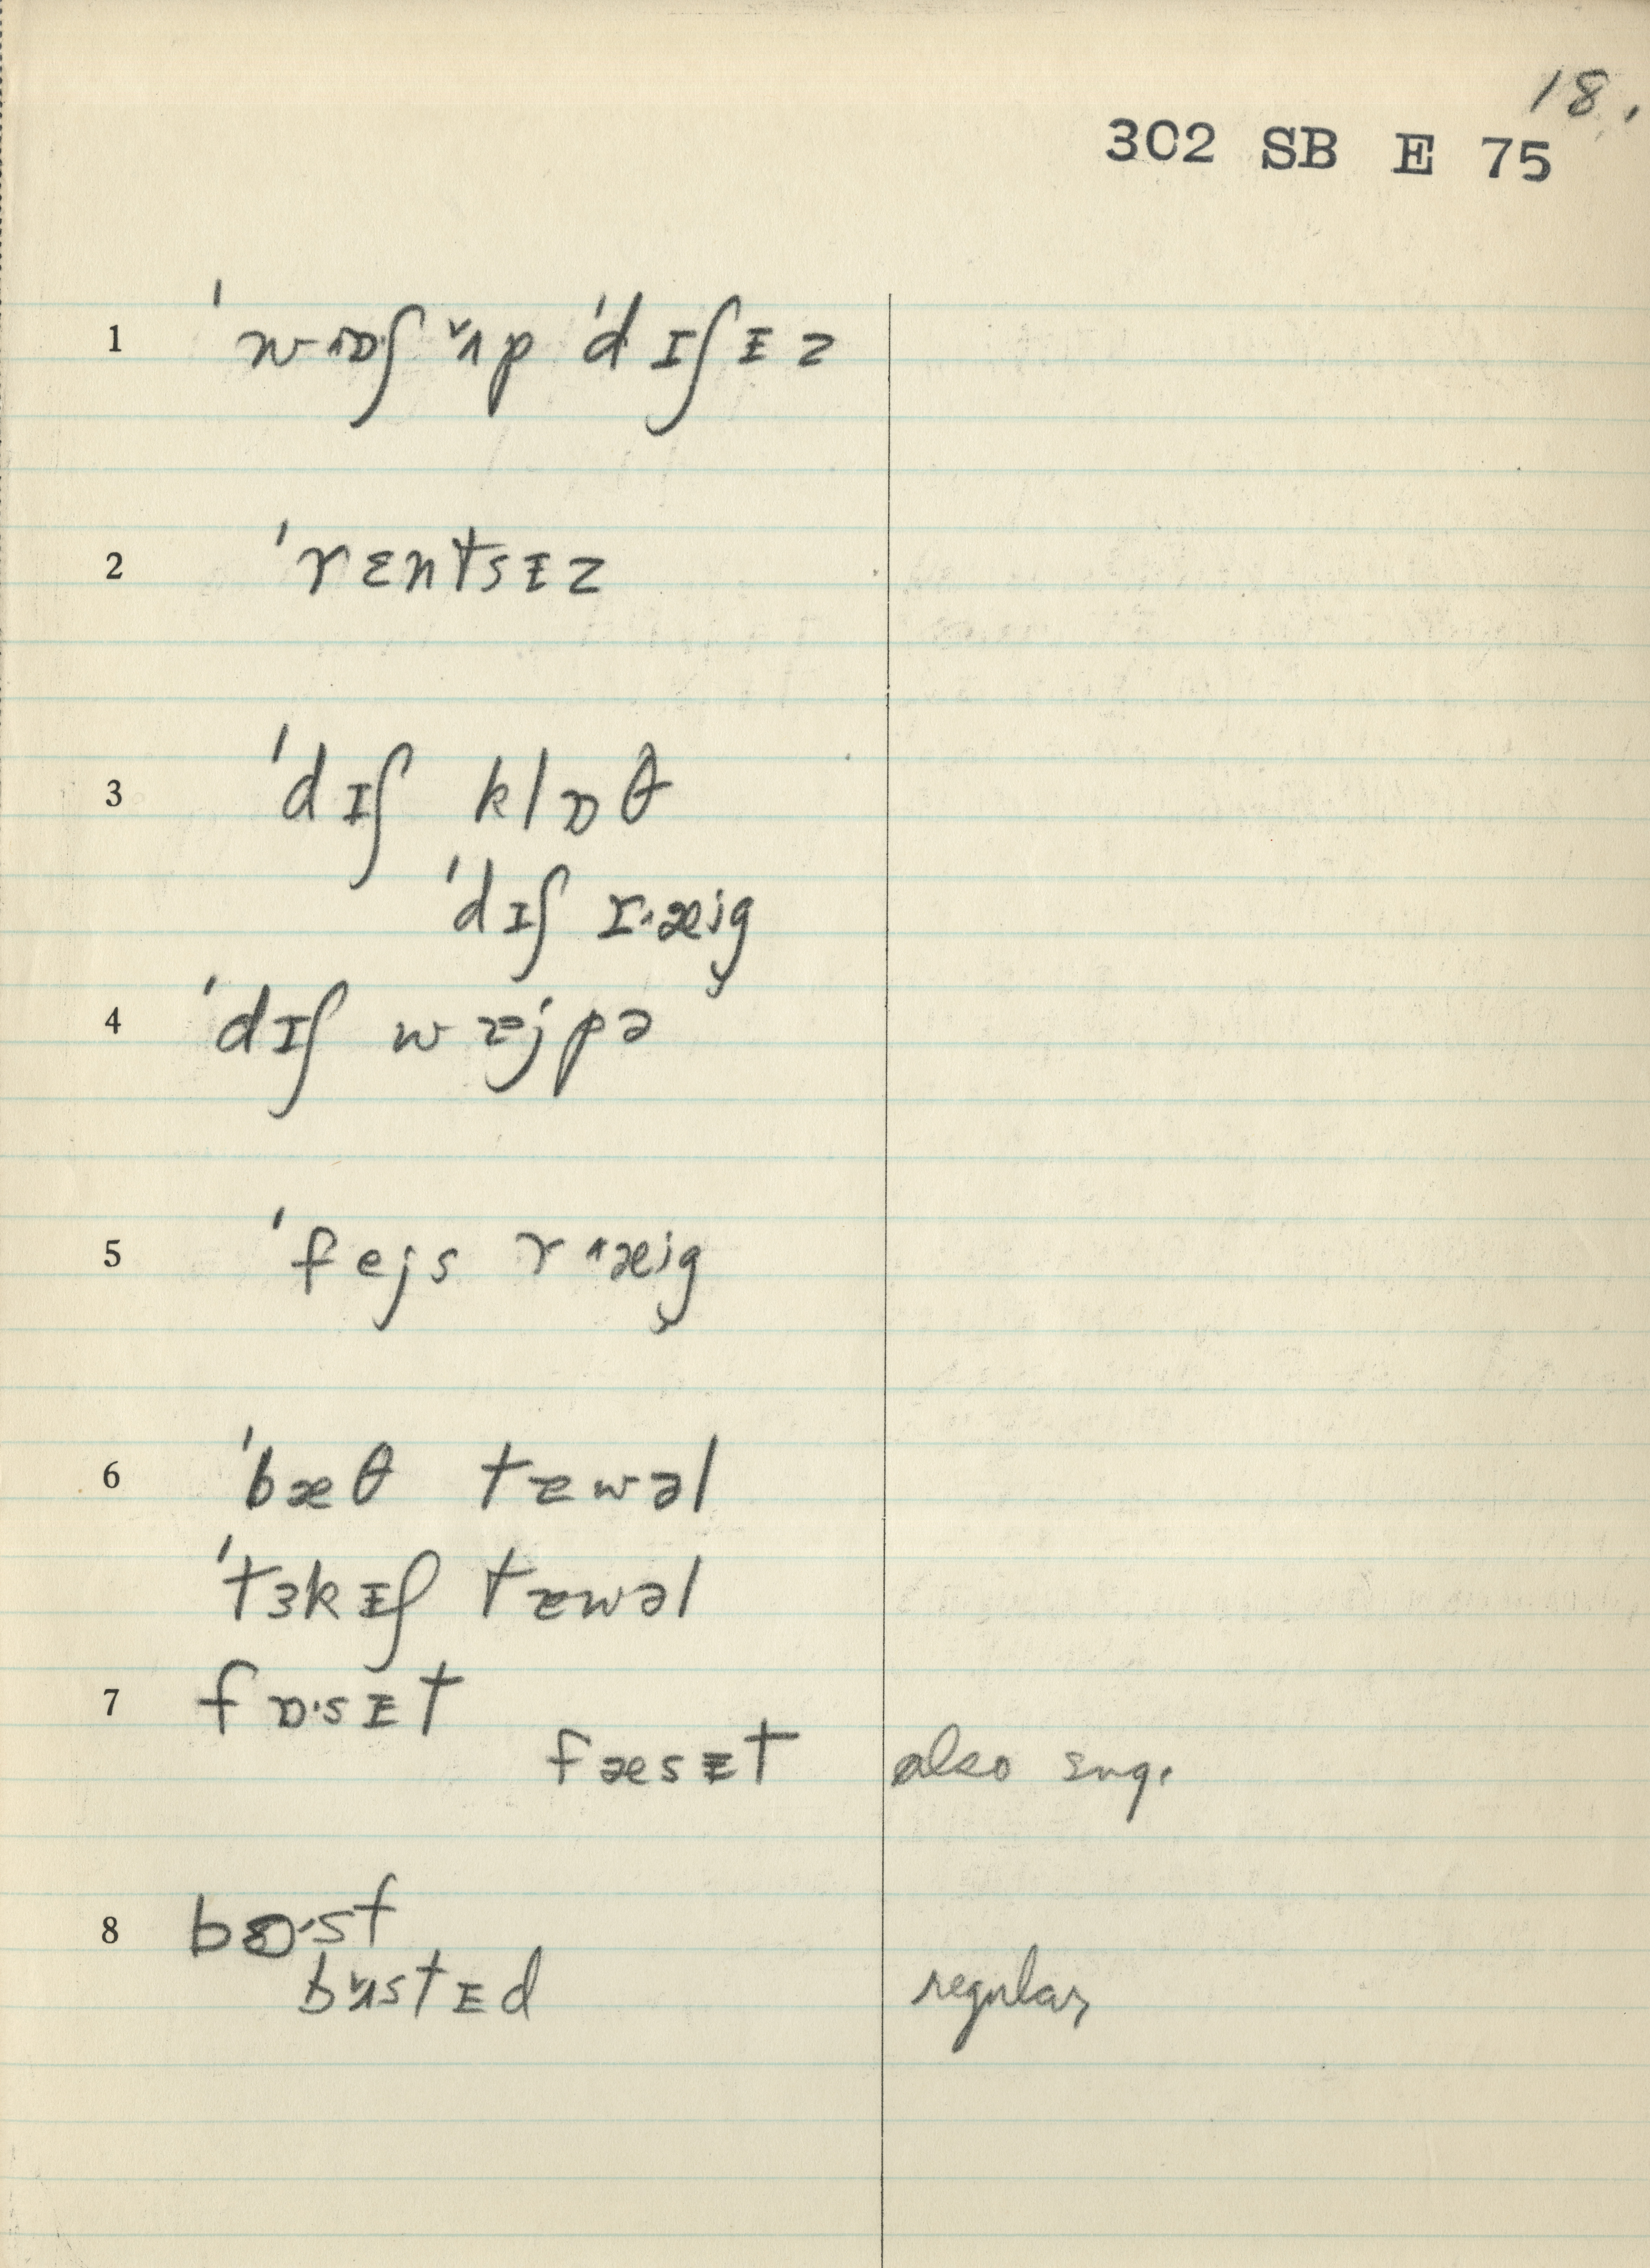 18.
302 SB E 75
1 ˈwɒʃ ʌp ˈdɪʃɪz
2 ˈrɛntsɪz
3 ˈdɪʃ klɒθ
ˈdɪʃ ræig
4 ˈdɪʃ wɛjpə
5 ˈfejs ræig
6 ˈbæθ tæwəl
ˈtɜkɪʃ tæwəl
7 fɒ·sɪt
fæsɪt also sng.
8 bɒ·st
bʌstɪd regular